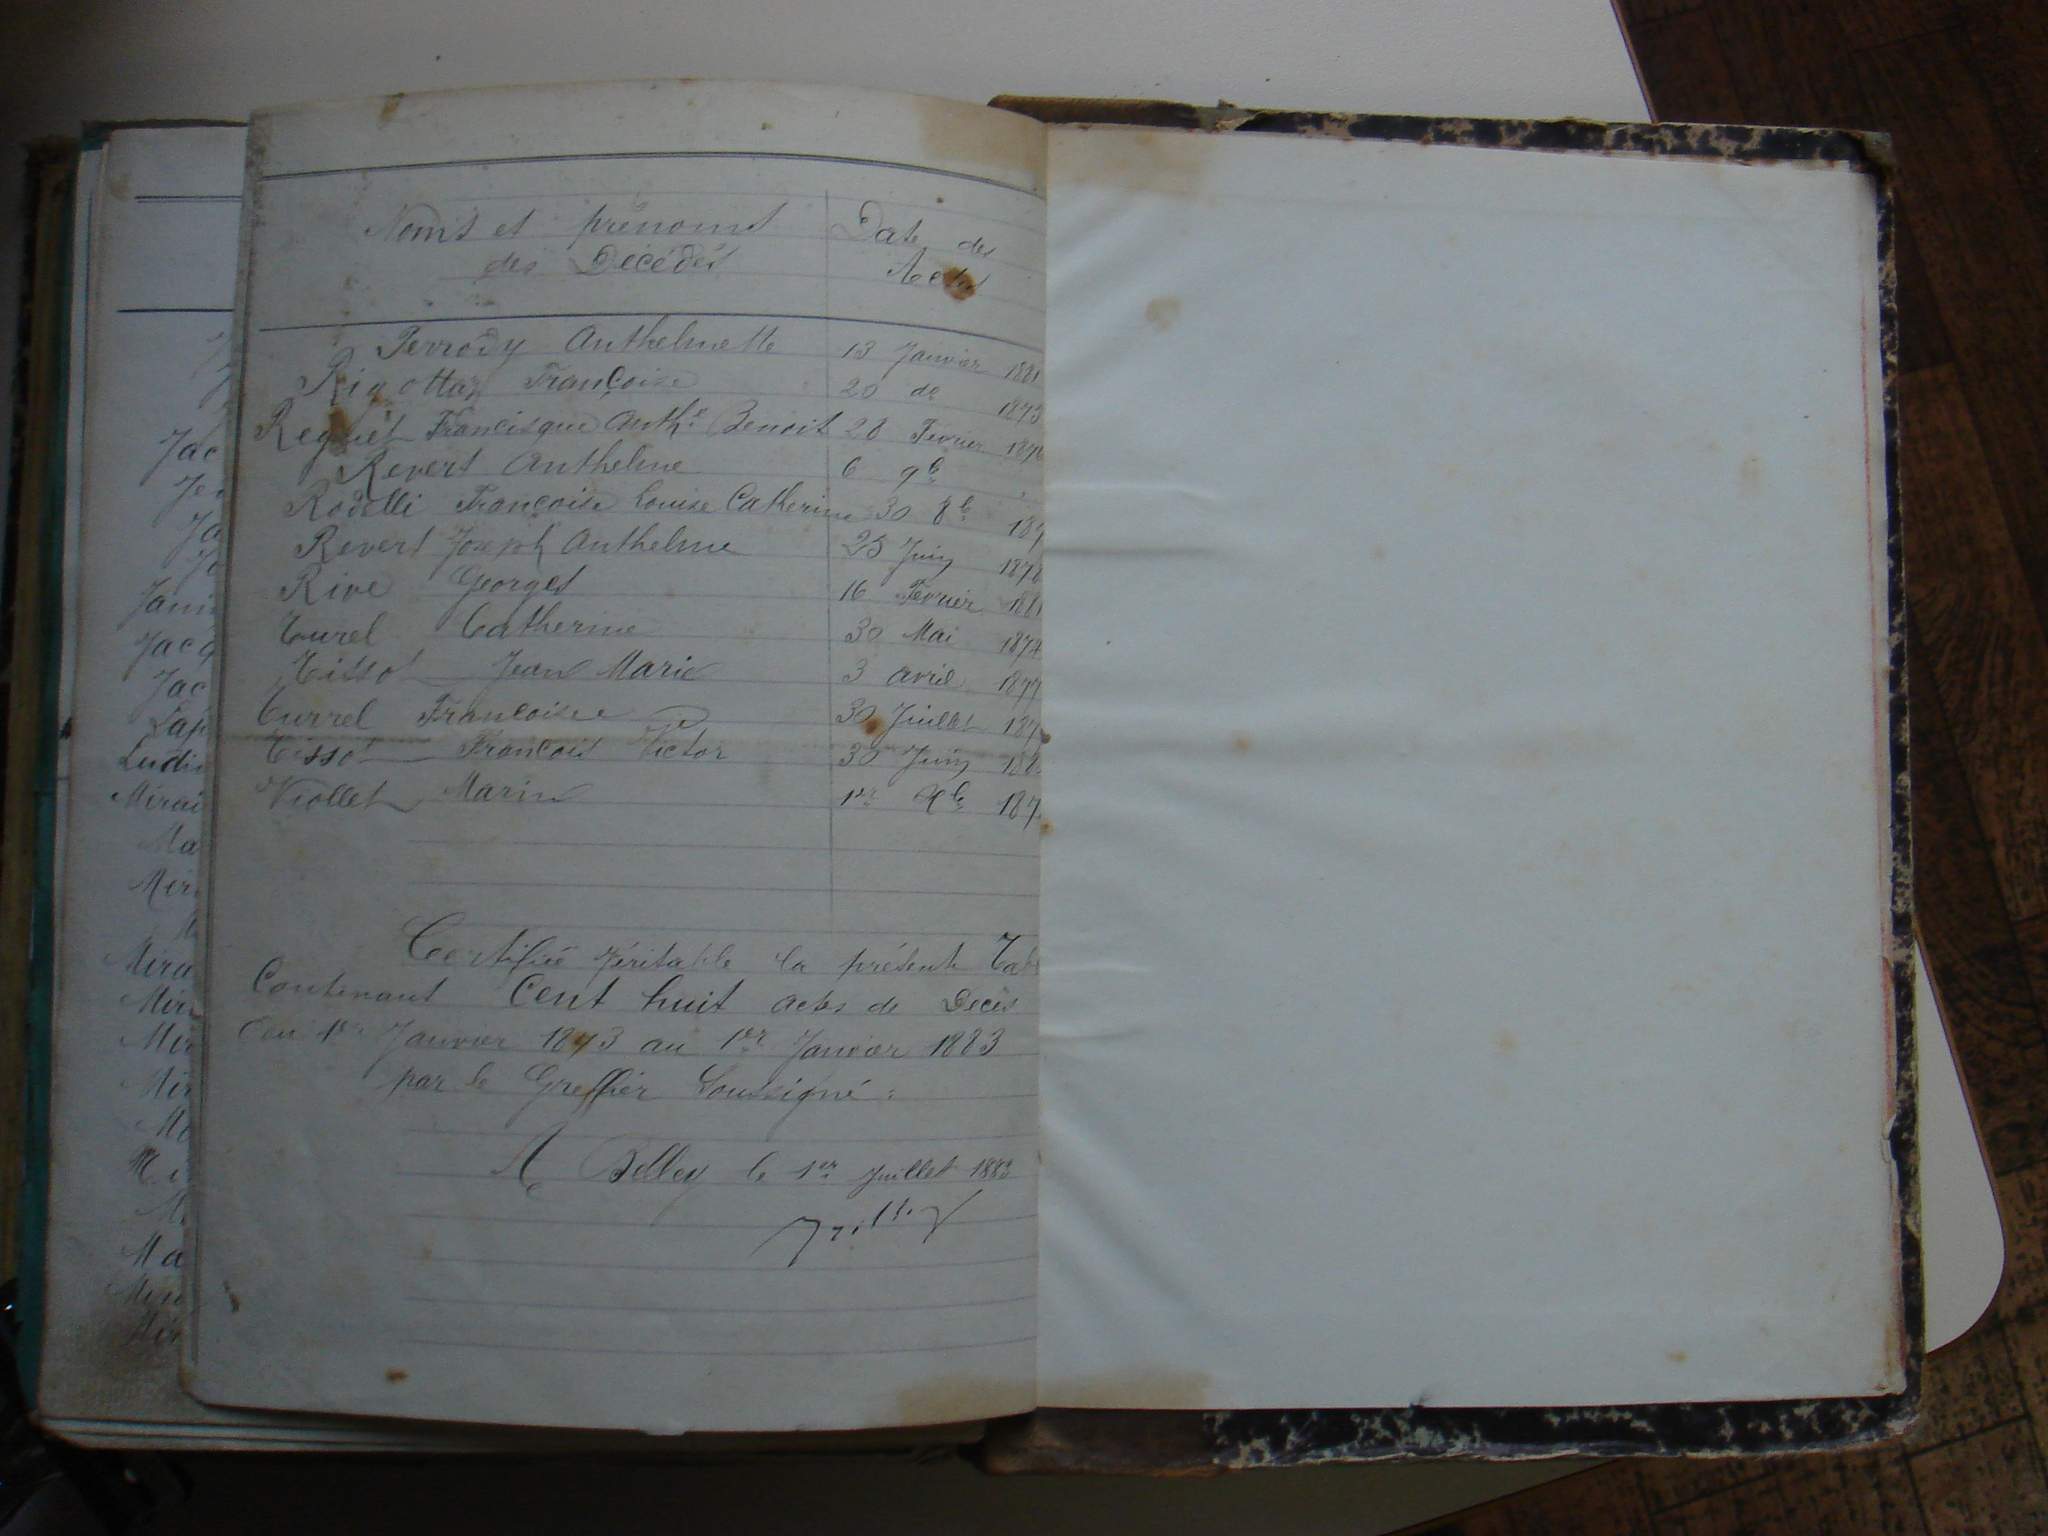 Noms et prénoms
des Décédés
Date des
Actes
Perrody Anthelmette 13 Janvier 1881
Rigottaz Françoise 20 do 1873
Reguet Francisque Anthe Benoit 28 Fevrier
Revert Anthelme 6 9b
Rodelli Françoise Louise Catherine 30 8b
Revert Joseph Anthelme 25 Juin 1878
Rive Georges 16 Fevrier 1881
Turel Catherine 30 Mai 1874
Tissot Jean Marie 3 avril 1877
Currel Françoise 30 Juillet
Tissot François Victor 30 Juin
Viollet Marin 1er Xb
Certifiée Véritable la présente Tab
Contenant Cent huit actes de Decès
du 1er Janvier 1873 au 1er Janvier 1883
par le Greffier Soussigné :
A Belley le 1er Juillet 1883
Jac
Ja
Jacq
Jac
Lap
Ludi
Mirai
Ma
Mira
Mir
Mir
Mir
Ma